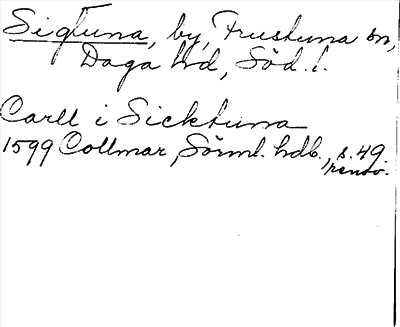 Sigtuna, by, Frustuna sn,
Daga hd, Söd. l.
Carll i Sicktuna
1599 Collmar, Sörml. hdb., s. 49.